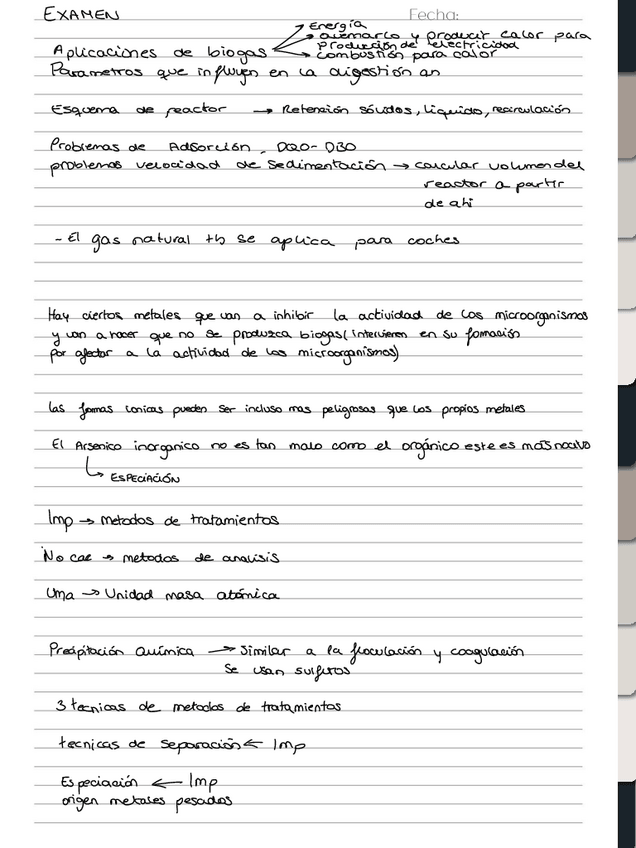 EXAMEN
Fecha:
Energía
quemarlo y producir calor para
Producción de electricidad
Aplicaciones de biogas
combustión para calor
Parametros que influyen en la digestión an
Esquema de reactor → Retención sólidos, líquido, recirculación
Problemas de Adsorción, DQO-DBO
problemas velocidad de sedimentación → calcular volumen del
reactor a partir
de ahí
- El gas natural tb se aplica para coches
Hay ciertos metales que van a inhibir la actividad de los microorganismos
y van a hacer que no se produzca biogas (intervienen en su formación
por afectar a la actividad de los microorganismos)
Las formas ionicas pueden ser incluso mas peligrosas que los propios metales
El Arsenico inorganico no es tan malo como el orgánico este es más nocivo
ESPECIACIÓN
Imp → metodos de tratamientos
No cae → metodos de analisis
Uma → Unidad masa atómica
Precipitación química → Similar a la floculación y coagulación
Se usan sulfuros
3 tecnicas de metodos de tratamientos
tecnicas de separación ← Imp
Especiación ← Imp
origen metales pesados